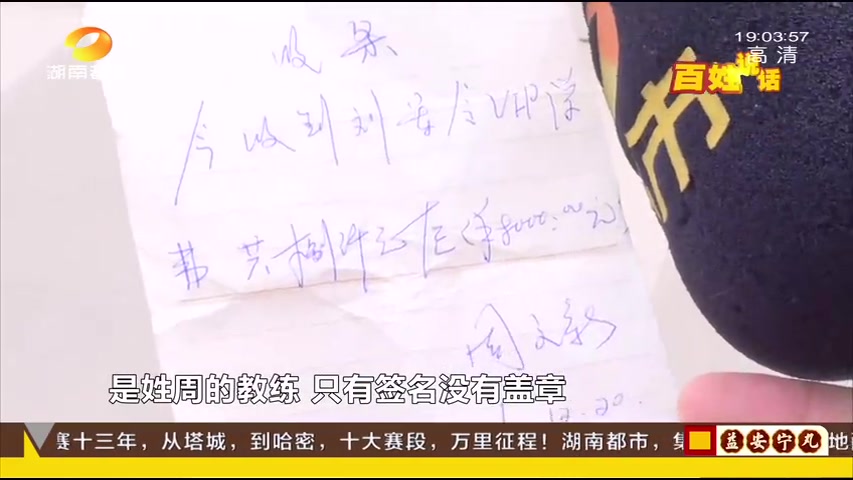 19:03:57
高清
湖南都
百姓说话
收条
今收到刘 VIP学
费 共捌仟元 (¥8000.00元)
周文
12.20.
是姓周的教练 只有签名没有盖章
赛十三年，从塔城，到哈密，十大赛段，万里征程！湖南都市，集
益安宁丸
地